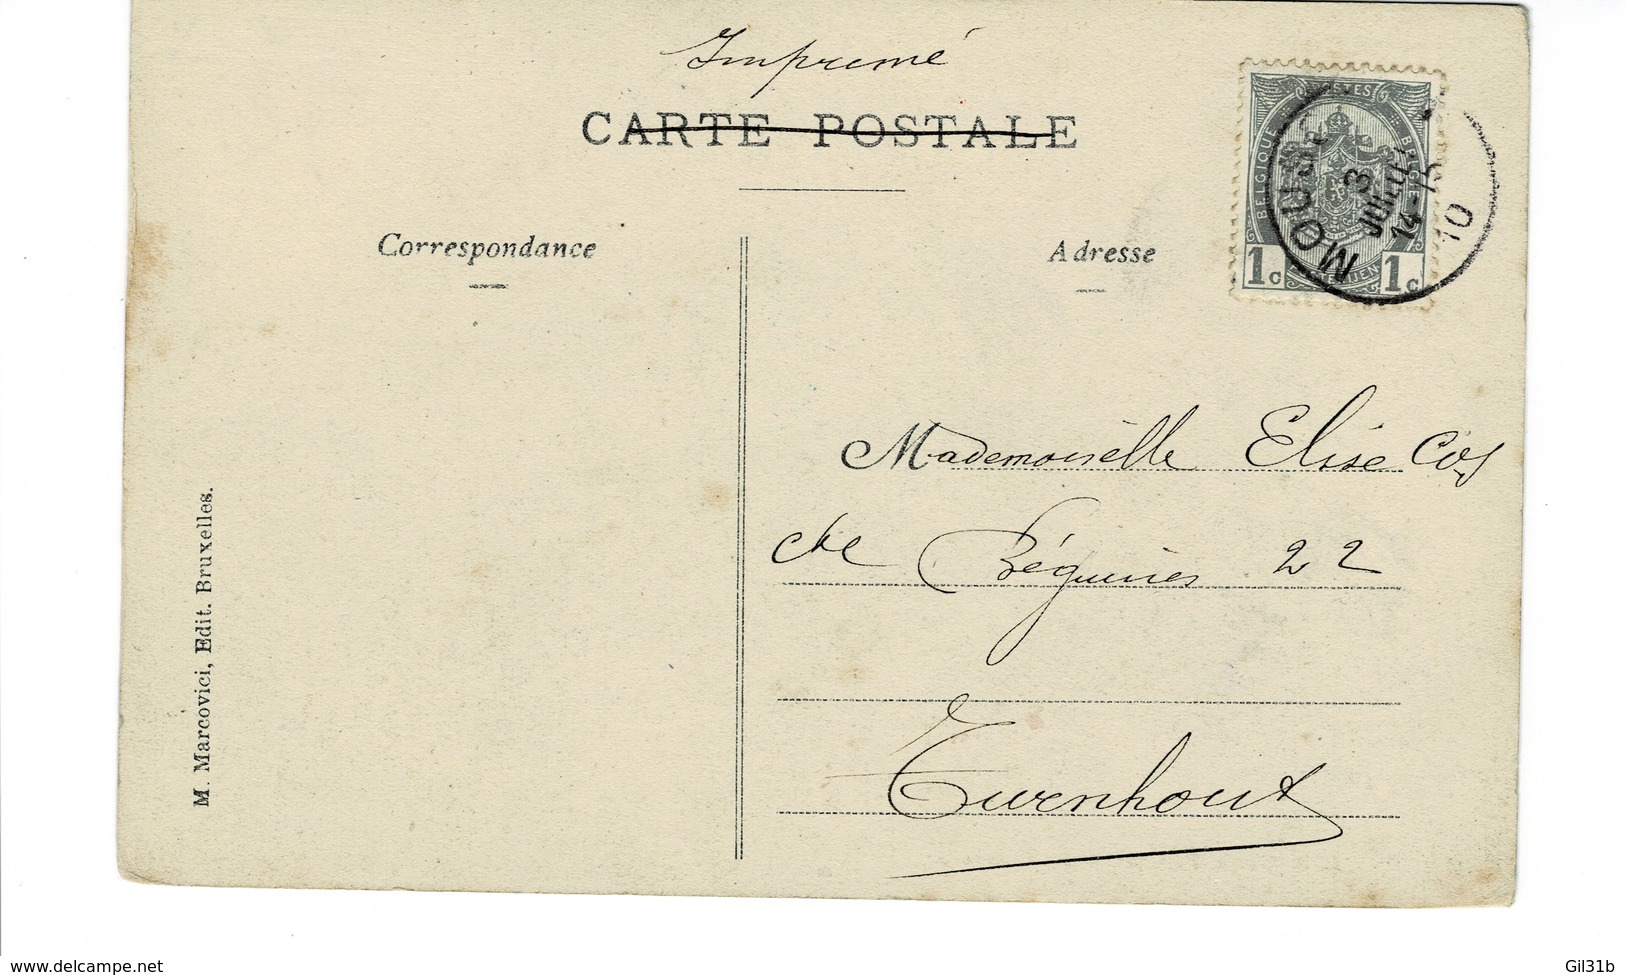 Imprimé
CARTE POSTALE
Correspondance
Adresse
BELGIQUE
1c 1c
3
JUILLET
14-15
10
Mademoiselle Elise
Béguines 22
Turnhout
M. Marcovici, Edit. Bruxelles.
delcampe.net
Gil31b